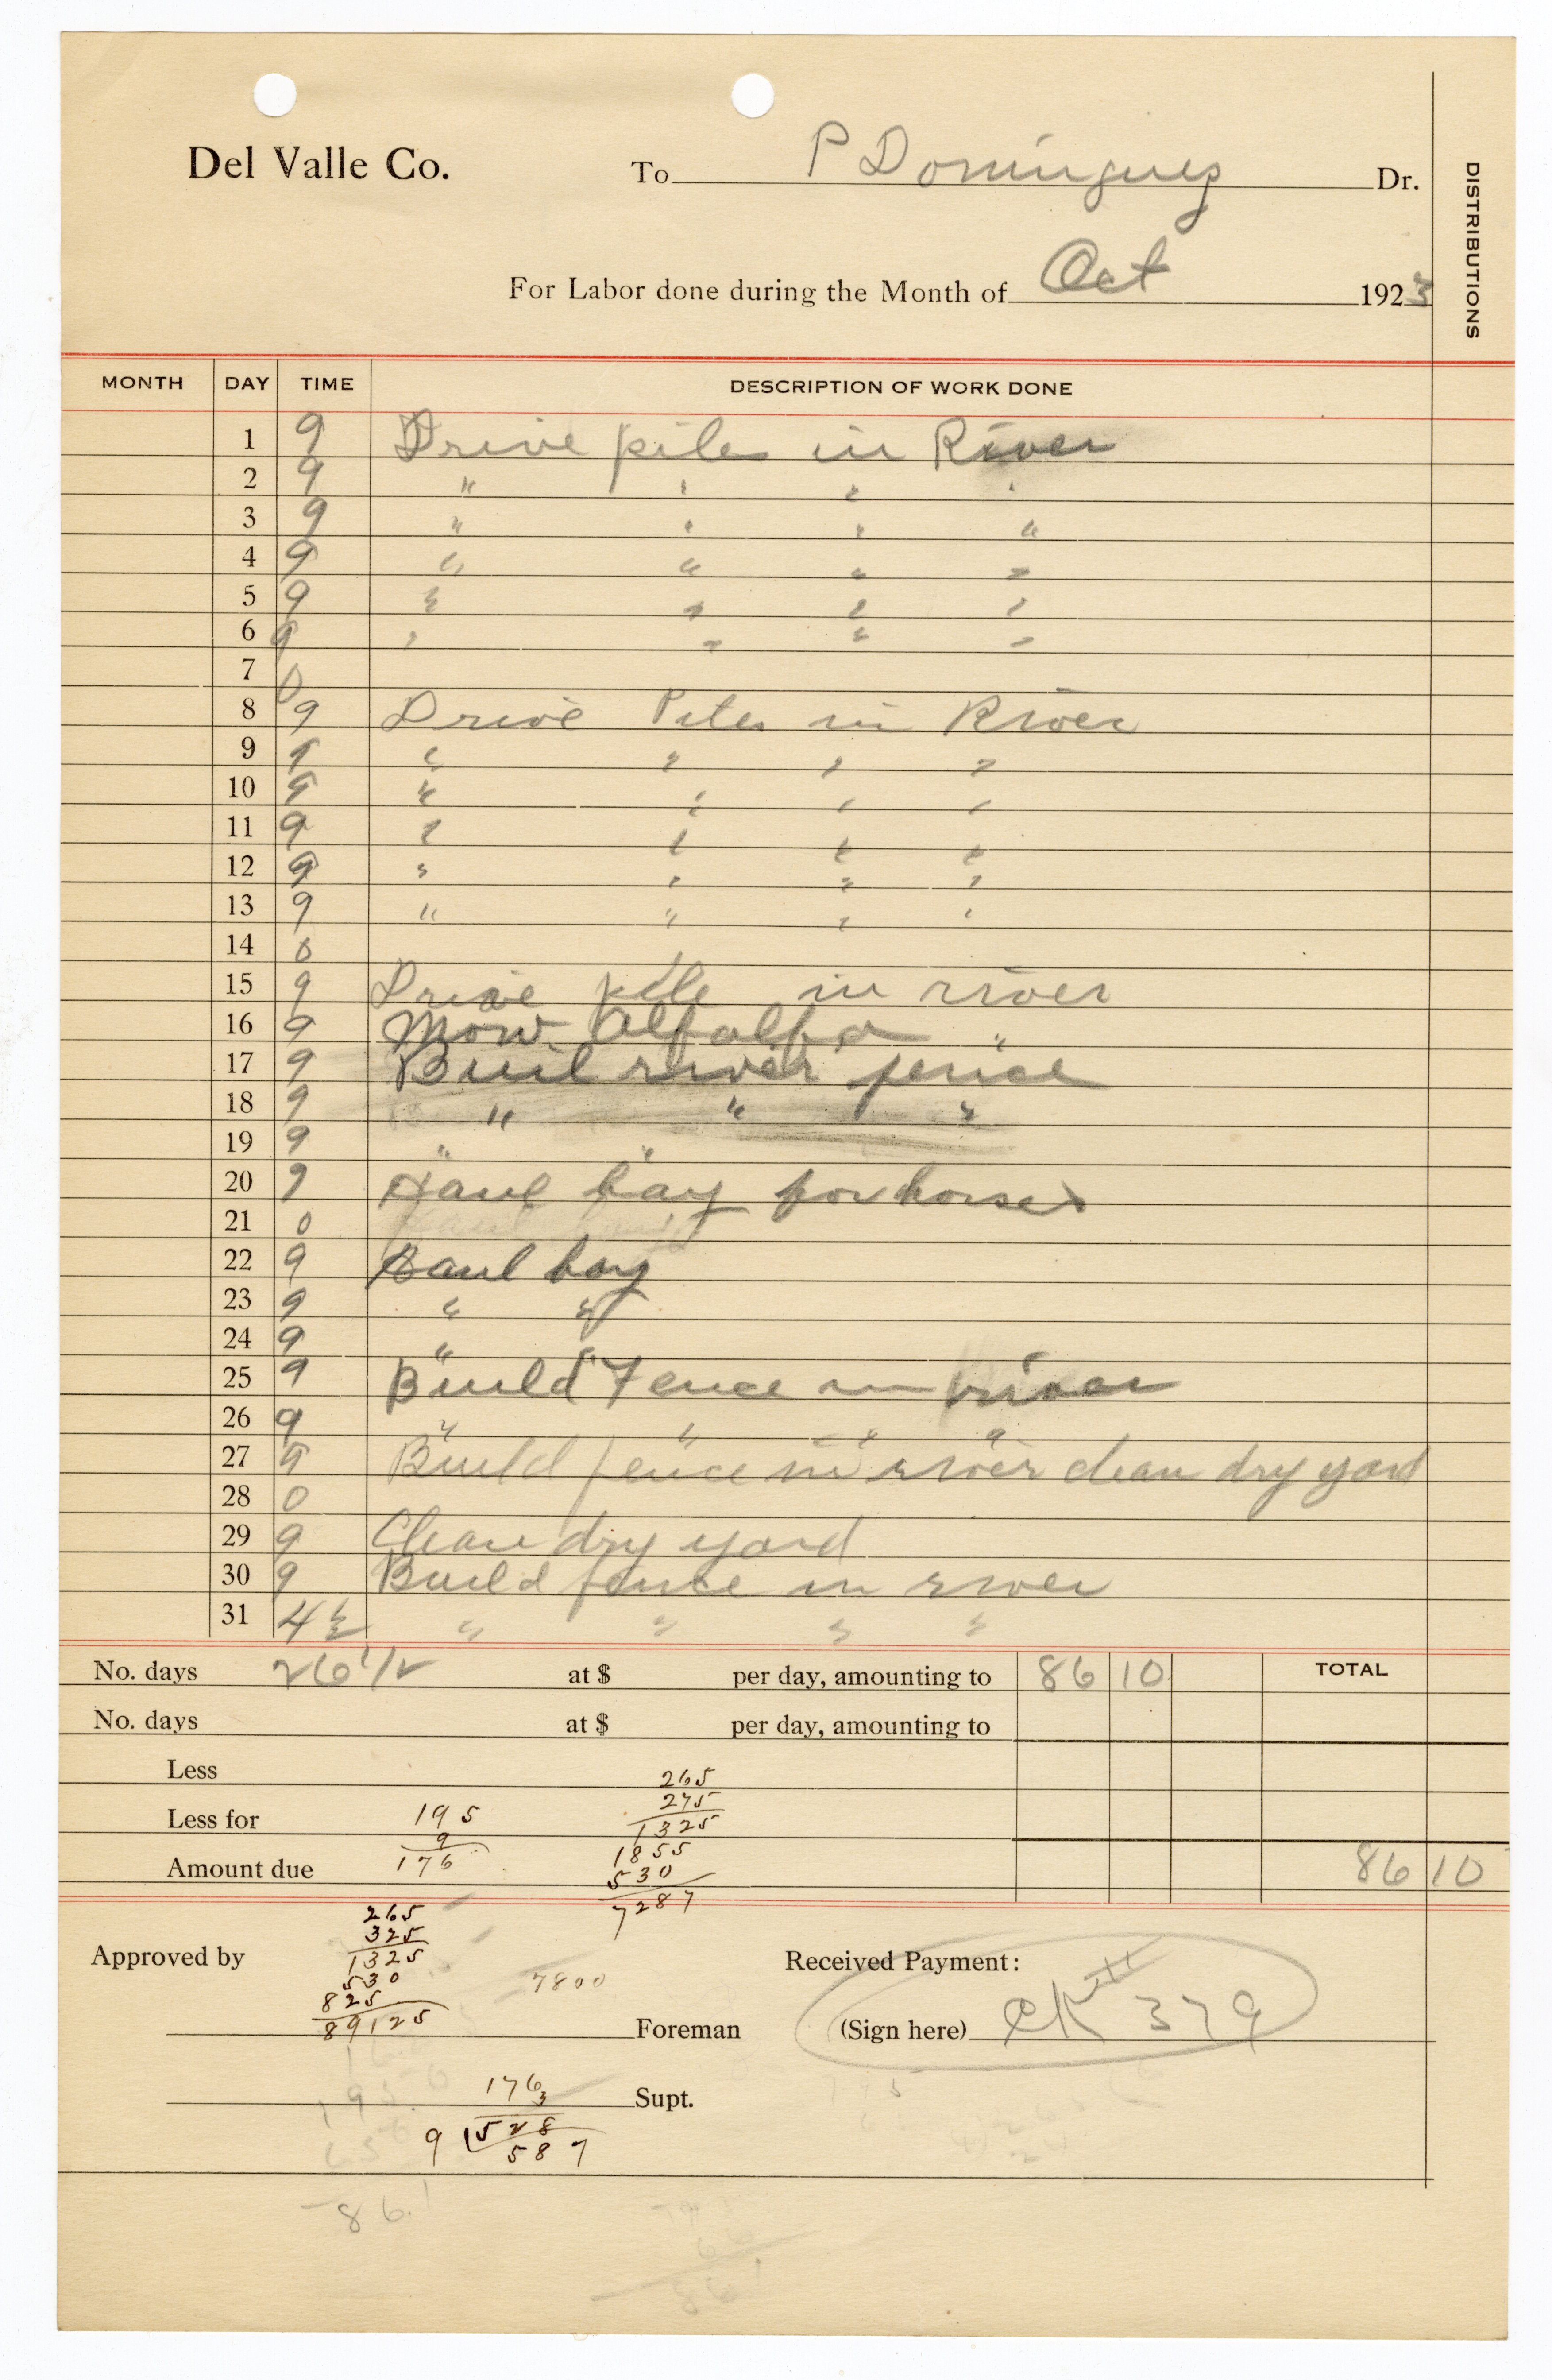 Del Valle Co. To P Dominguez Dr.
DISTRIBUTIONS
For Labor done during the Month of Oct 1923
MONTH DAY TIME DESCRIPTION OF WORK DONE
1 9 Drive piles in River
2 9 " " " "
3 9 " " " "
4 9 " " " "
5 9 " " " "
6 9 " " " "
7 0
8 9 Drive Piles in River
9 9 " " " "
10 9 " " " "
11 9 " " " "
12 9 " " " "
13 9 " " " "
14 0
15 9 Drive pile in river
16 9 Mow Alfalfa "
17 9 Buil river fence
18 9 " " "
19 9 " "
20 9 Haul hay for horses
21 0
22 9 Haul hay
23 9 " "
24 9 " "
25 9 Build Fence in river
26 9 " " " "
27 9 Build fence in river clean dry yard
28 0
29 9 Clean dry yard
30 9 Build fence in river
31 4½ " " " "
No. days 26 1/2 at $ per day, amounting to 86 10 TOTAL
No. days at $ per day, amounting to
Less
Less for
Amount due 86 10
195
9
176
265
275
1325
1855
530
7287
265
325
1325
530
825
89125
7800
Approved by Received Payment:
Foreman (Sign here) ck 379
Supt.
176
3
9 528
587
861